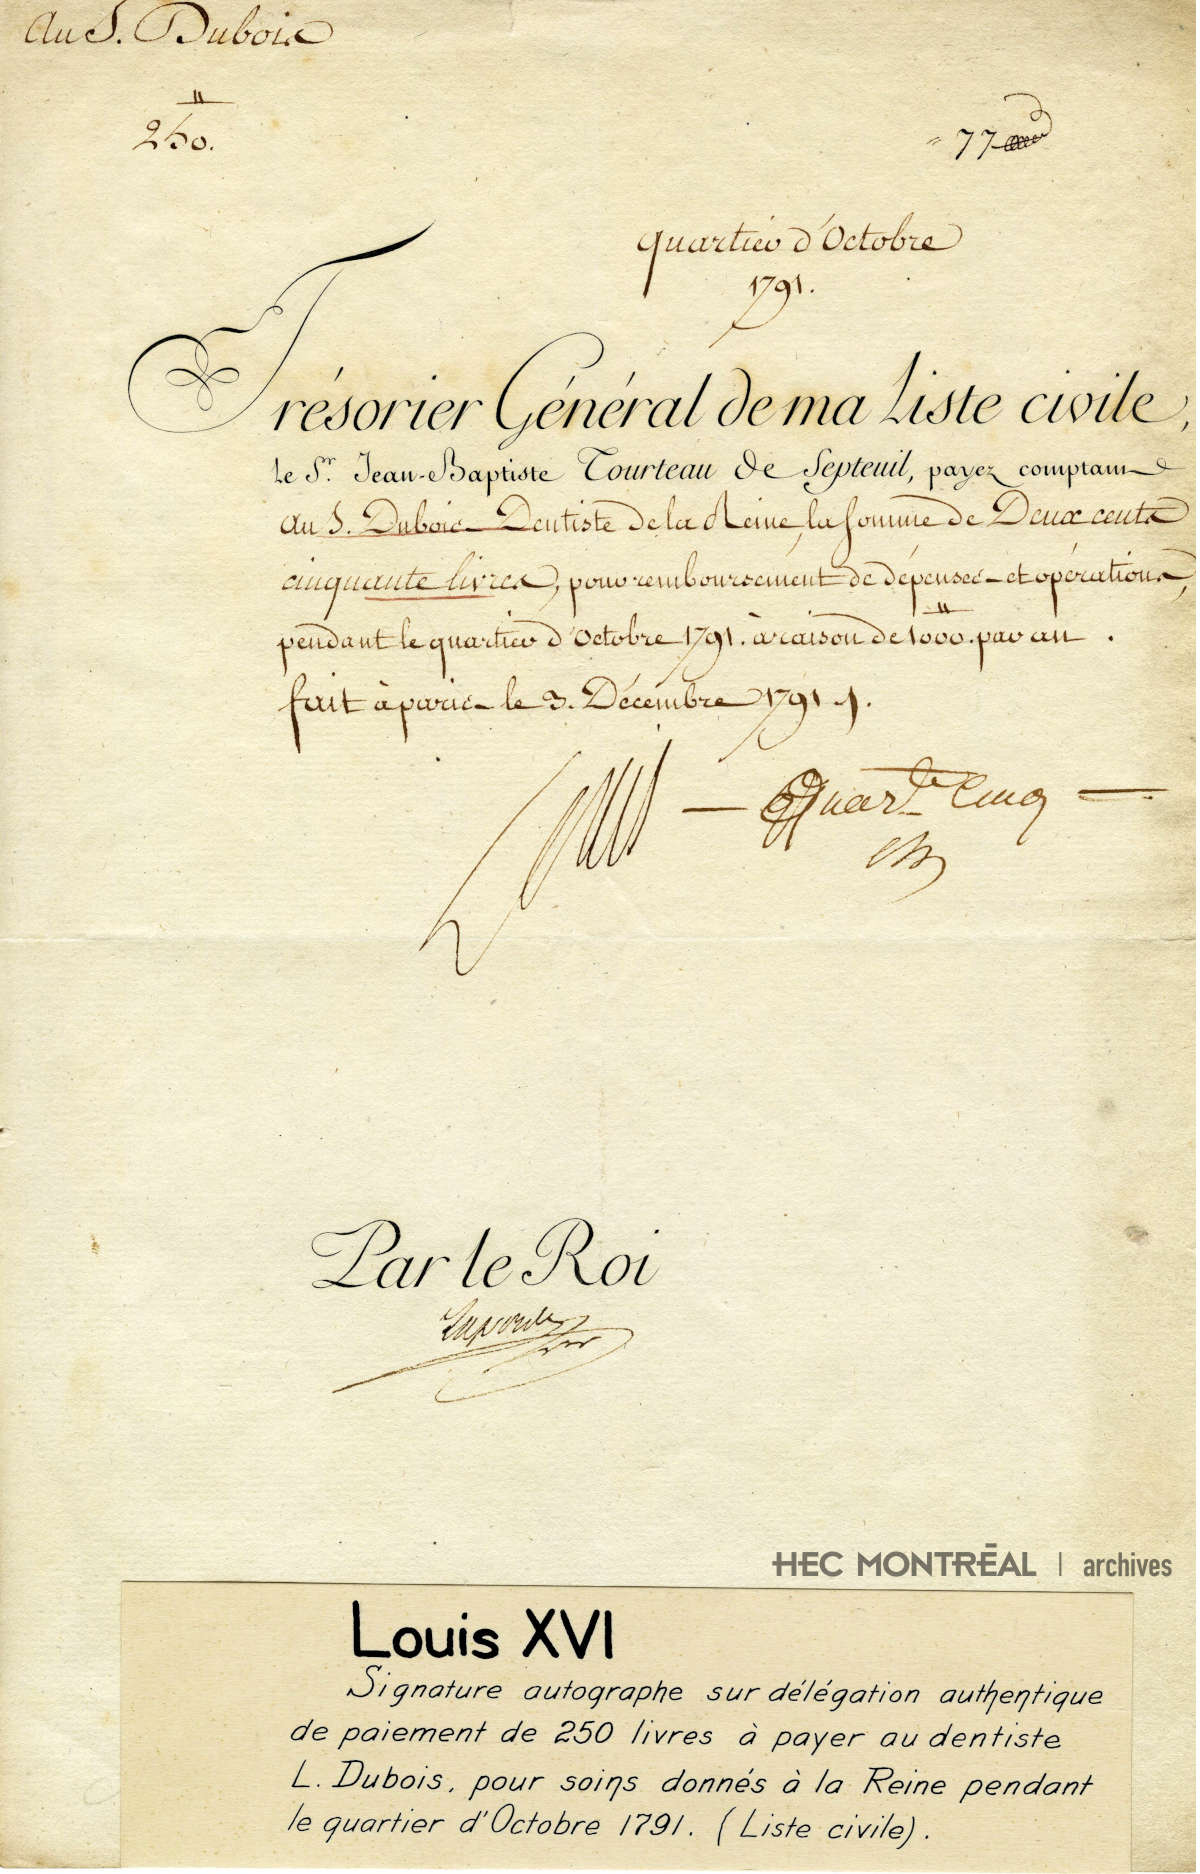 Au S. Dubois
250.^{tt}
77
quartier d'Octobre
1791.
Trésorier Général de ma Liste civile,
Le Sr. Jean-Baptiste Tourteau De Septeuil, payez comptant
au S. Dubois Dentiste de la Reine, la somme de Deux cents
cinquante livres, pour remboursement de dépenses et opérations,
pendant le quartier d'Octobre 1791. à raison de 1000.^{tt} par an.
fait à paris le 3. Décembre 1791.
Louis
Par le Roi
Laporte
HEC MONTRÉAL | archives
Louis XVI
Signature autographe sur délégation authentique
de paiement de 250 livres à payer au dentiste
L. Dubois, pour soins donnés à la Reine pendant
le quartier d'Octobre 1791. (Liste civile).